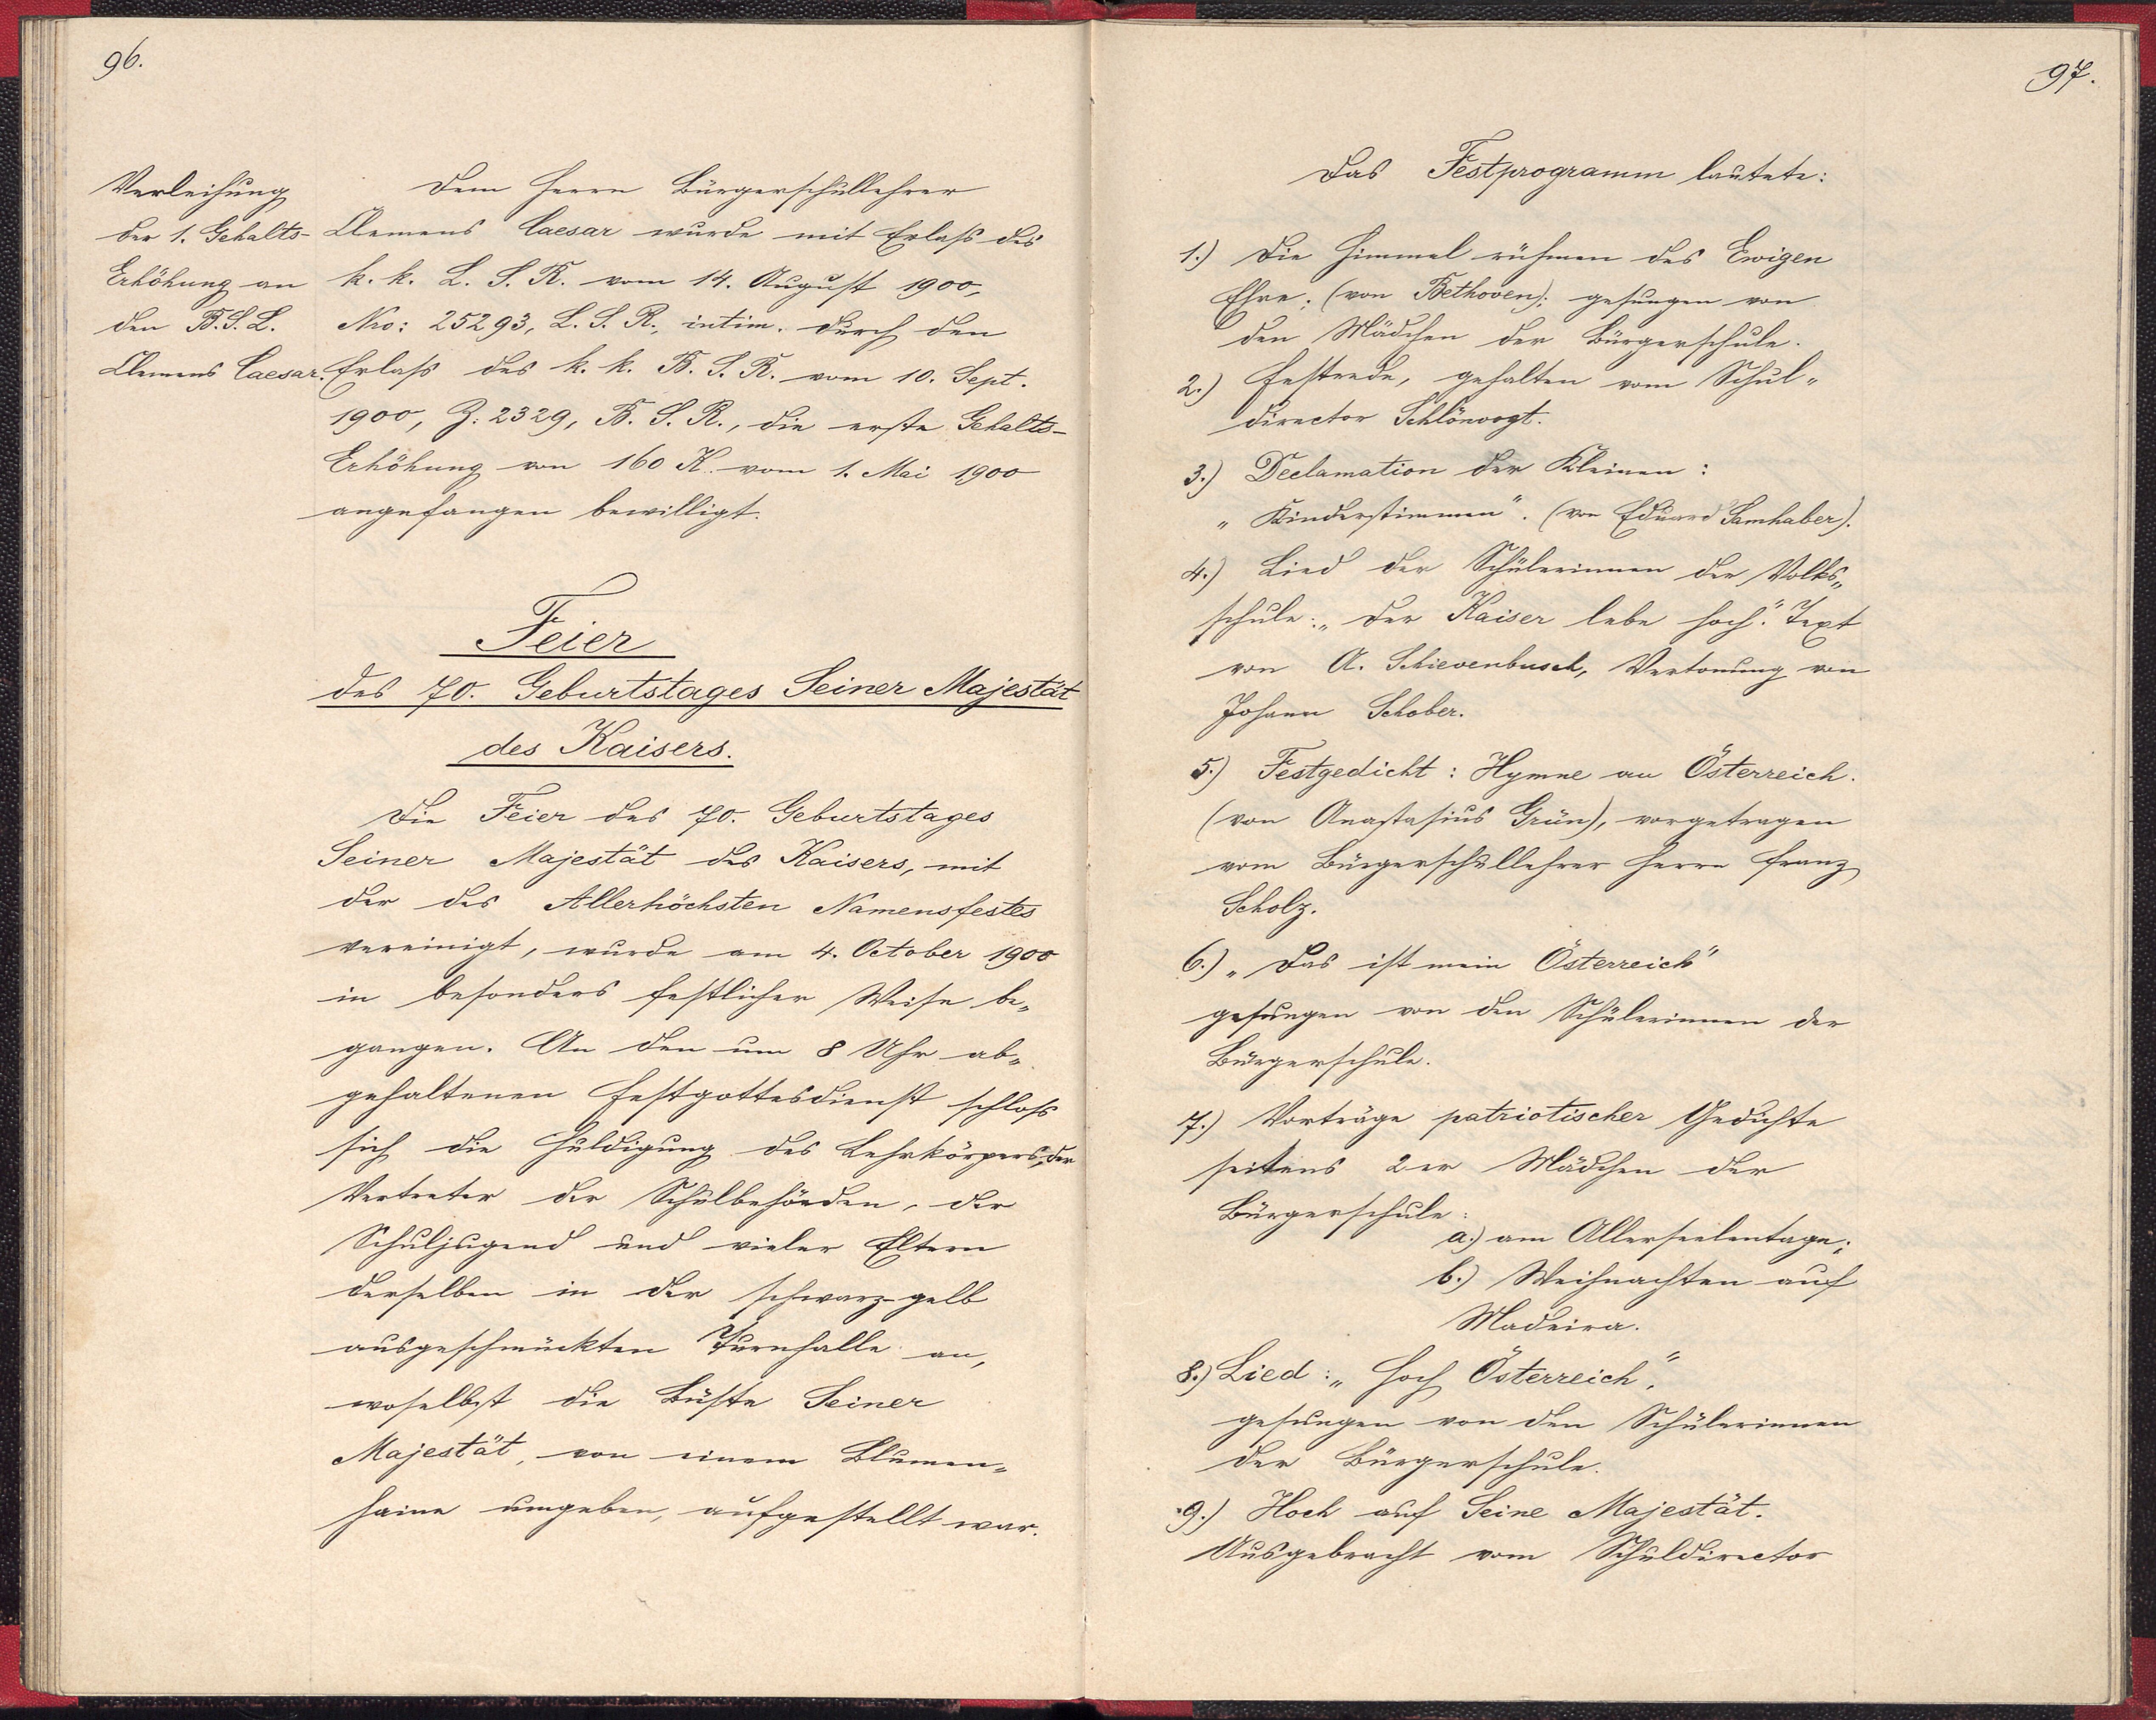 96.
Verleihung
der 1. Gehalts-
Erhöhung an
den B.S.L.
Clemens Caesar.
Dem Herrn Bürgerschullehrer
Clemens Caesar wurde mit Erlass des
k. k. L. S. R. vom 14. August 1900,
Nro: 25293, L. S. R., intim. durch den
Erlass des k. k. B. S. R. vom 10. Sept.
1900, Z: 2329, B. S. R., die erste Gehalts-
Erhöhung von 160 K. vom 1. Mai 1900
angefangen bewilligt.
Feier
des 70. Geburtstages Seiner Majestät
des Kaisers.
Die Feier des 70. Geburtstages
Seiner Majestät des Kaisers, mit
der des Allerhöchsten Namensfestes
vereinigt, wurde am 4. October 1900
in besonders festlicher Weise be„
gangen. An den um 8 Uhr ab„
gehaltenen Festgottesdienst schloss
sich die Huldigung des Lehrkörpers, der
Vertreter der Schulbehörden, der
Schuljugend und vieler Eltern
derselben in der schwarz-gelb
ausgeschmückten Turnhalle an,
woselbst die Büste Seiner
Majestät, von einem Blumen„
haine umgeben, aufgestellt war.
97.
Das Festprogramm lautete:
1.) Die Himmel rühmen des Ewigen
Ehre; (von Bethoven); gesungen von
den Mädchen der Bürgerschule.
2.) Festrede, gehalten vom Schul„
director Schlönvogt.
3.) Declamation der Kleinen:
„Kinderstimmen". (von Eduard Samhaber).
4.) Lied der Schülerinnen der Volks„
schule: „Der Kaiser lebe hoch". Text
von A. Schievenbusch, Vertonung von
Johann Schober.
5.) Festgedicht: Hymne an Österreich.
(von Anastasius Grün), vorgetragen
vom Bürgerschullehrer Herrn Franz
Scholz.
6.) „Das ist mein Österreich"
gesungen von den Schülerinnen der
Bürgerschule.
7.) Vorträge patriotischer Gedichte
seitens 2er Mädchen der
Bürgerschule:
a.) am Allerseelentage;
b.) Weihnachten auf
Madeira.
8.) Lied: „Hoch Österreich",
gesungen von den Schülerinnen
der Bürgerschule.
9.) Hoch auf Seine Majestät.
Ausgebracht vom Schuldirector